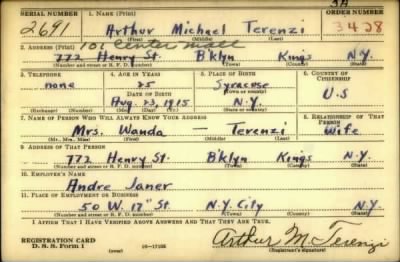 3A
SERIAL NUMBER 1. NAME (Print) ORDER NUMBER
2691 Arthur Michael Terenzi 3428
(First) (Middle) (Last)
2. ADDRESS (Print) 101 Center Mall
772 Henry St. B'klyn Kings N.Y.
(Number and street or R. F. D. number) (Town) (County) (State)
3. TELEPHONE 4. AGE IN YEARS 5. PLACE OF BIRTH 6. COUNTRY OF CITIZENSHIP
none 25 Syracose
DATE OF BIRTH (Town or county)
Aug. 23, 1915 N.Y. U.S
(Exchange) (Number) (Mo.) (Day) (Yr.) (State or country)
7. NAME OF PERSON WHO WILL ALWAYS KNOW YOUR ADDRESS 8. RELATIONSHIP OF THAT PERSON
Mrs. Wanda — Terenzi Wife
(Mr., Mrs., Miss) (First) (Middle) (Last)
9. ADDRESS OF THAT PERSON
772 Henry St. B'klyn Kings N.Y.
(Number and street or R. F. D. number) (Town) (County) (State)
10. EMPLOYER'S NAME
Andre Janer
11. PLACE OF EMPLOYMENT OR BUSINESS
50 W. 17" St. N.Y. City N.Y.
(Number and street or R. F. D. number) (Town) (County) (State)
I AFFIRM THAT I HAVE VERIFIED ABOVE ANSWERS AND THAT THEY ARE TRUE.
REGISTRATION CARD
D. S. S. Form 1 (over) Arthur M. Terenzi
(Registrant's signature)